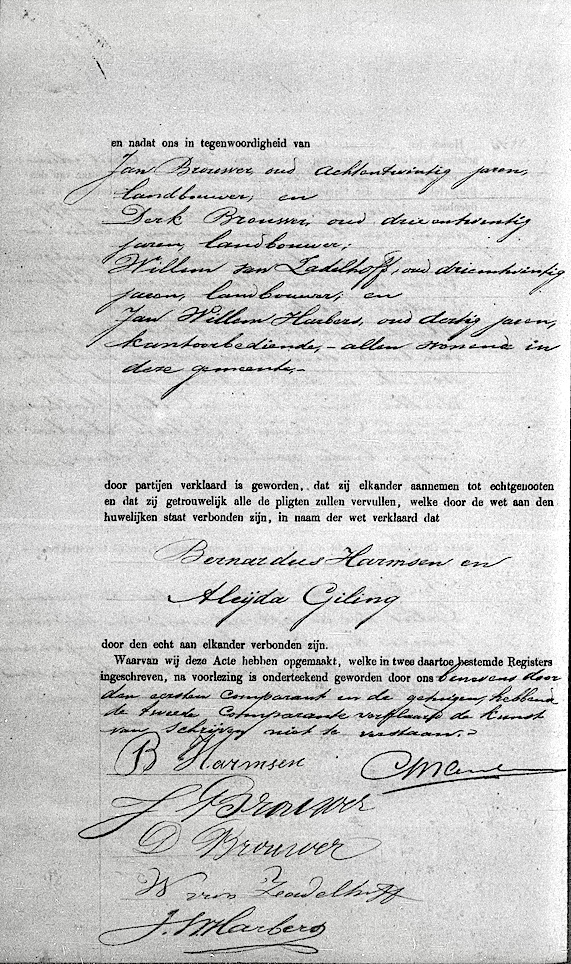 en nadat ons in tegenwoordigheid van
Jan Brouwer, oud achtentwintig jaren,
landbouwer, en
Derk Brouwer, oud drieentwintig
jaren, landbouwer;
Willem van Zadelhoff, oud drieentwintig
jaren, landbouwer, en
Jan Willem Harbers, oud dertig jaren,
kantoorbediende, - allen wonend in
deze gemeente, -
door partijen verklaard is geworden, dat zij elkander aannemen tot echtgenooten
en dat zij getrouwelijk alle de pligten zullen vervullen, welke door de wet aan den
huwelijken staat verbonden zijn, in naam der wet verklaard dat
Bernardus Harmsen en
Aleijda Giling
door den echt aan elkander verbonden zijn.
Waarvan wij deze Acte hebben opgemaakt, welke in twee daartoe bestemde Registers
ingeschreven, na voorlezing is onderteekend geworden door ons benevens door
den eersten comparant en de getuigen, hebbende
de tweede comparante verklaard de kunst
van schrijven niet te verstaan. -
B Harmsen
J Brouwer
D Brouwer
W van Zadelhoff
J. W. Harbers